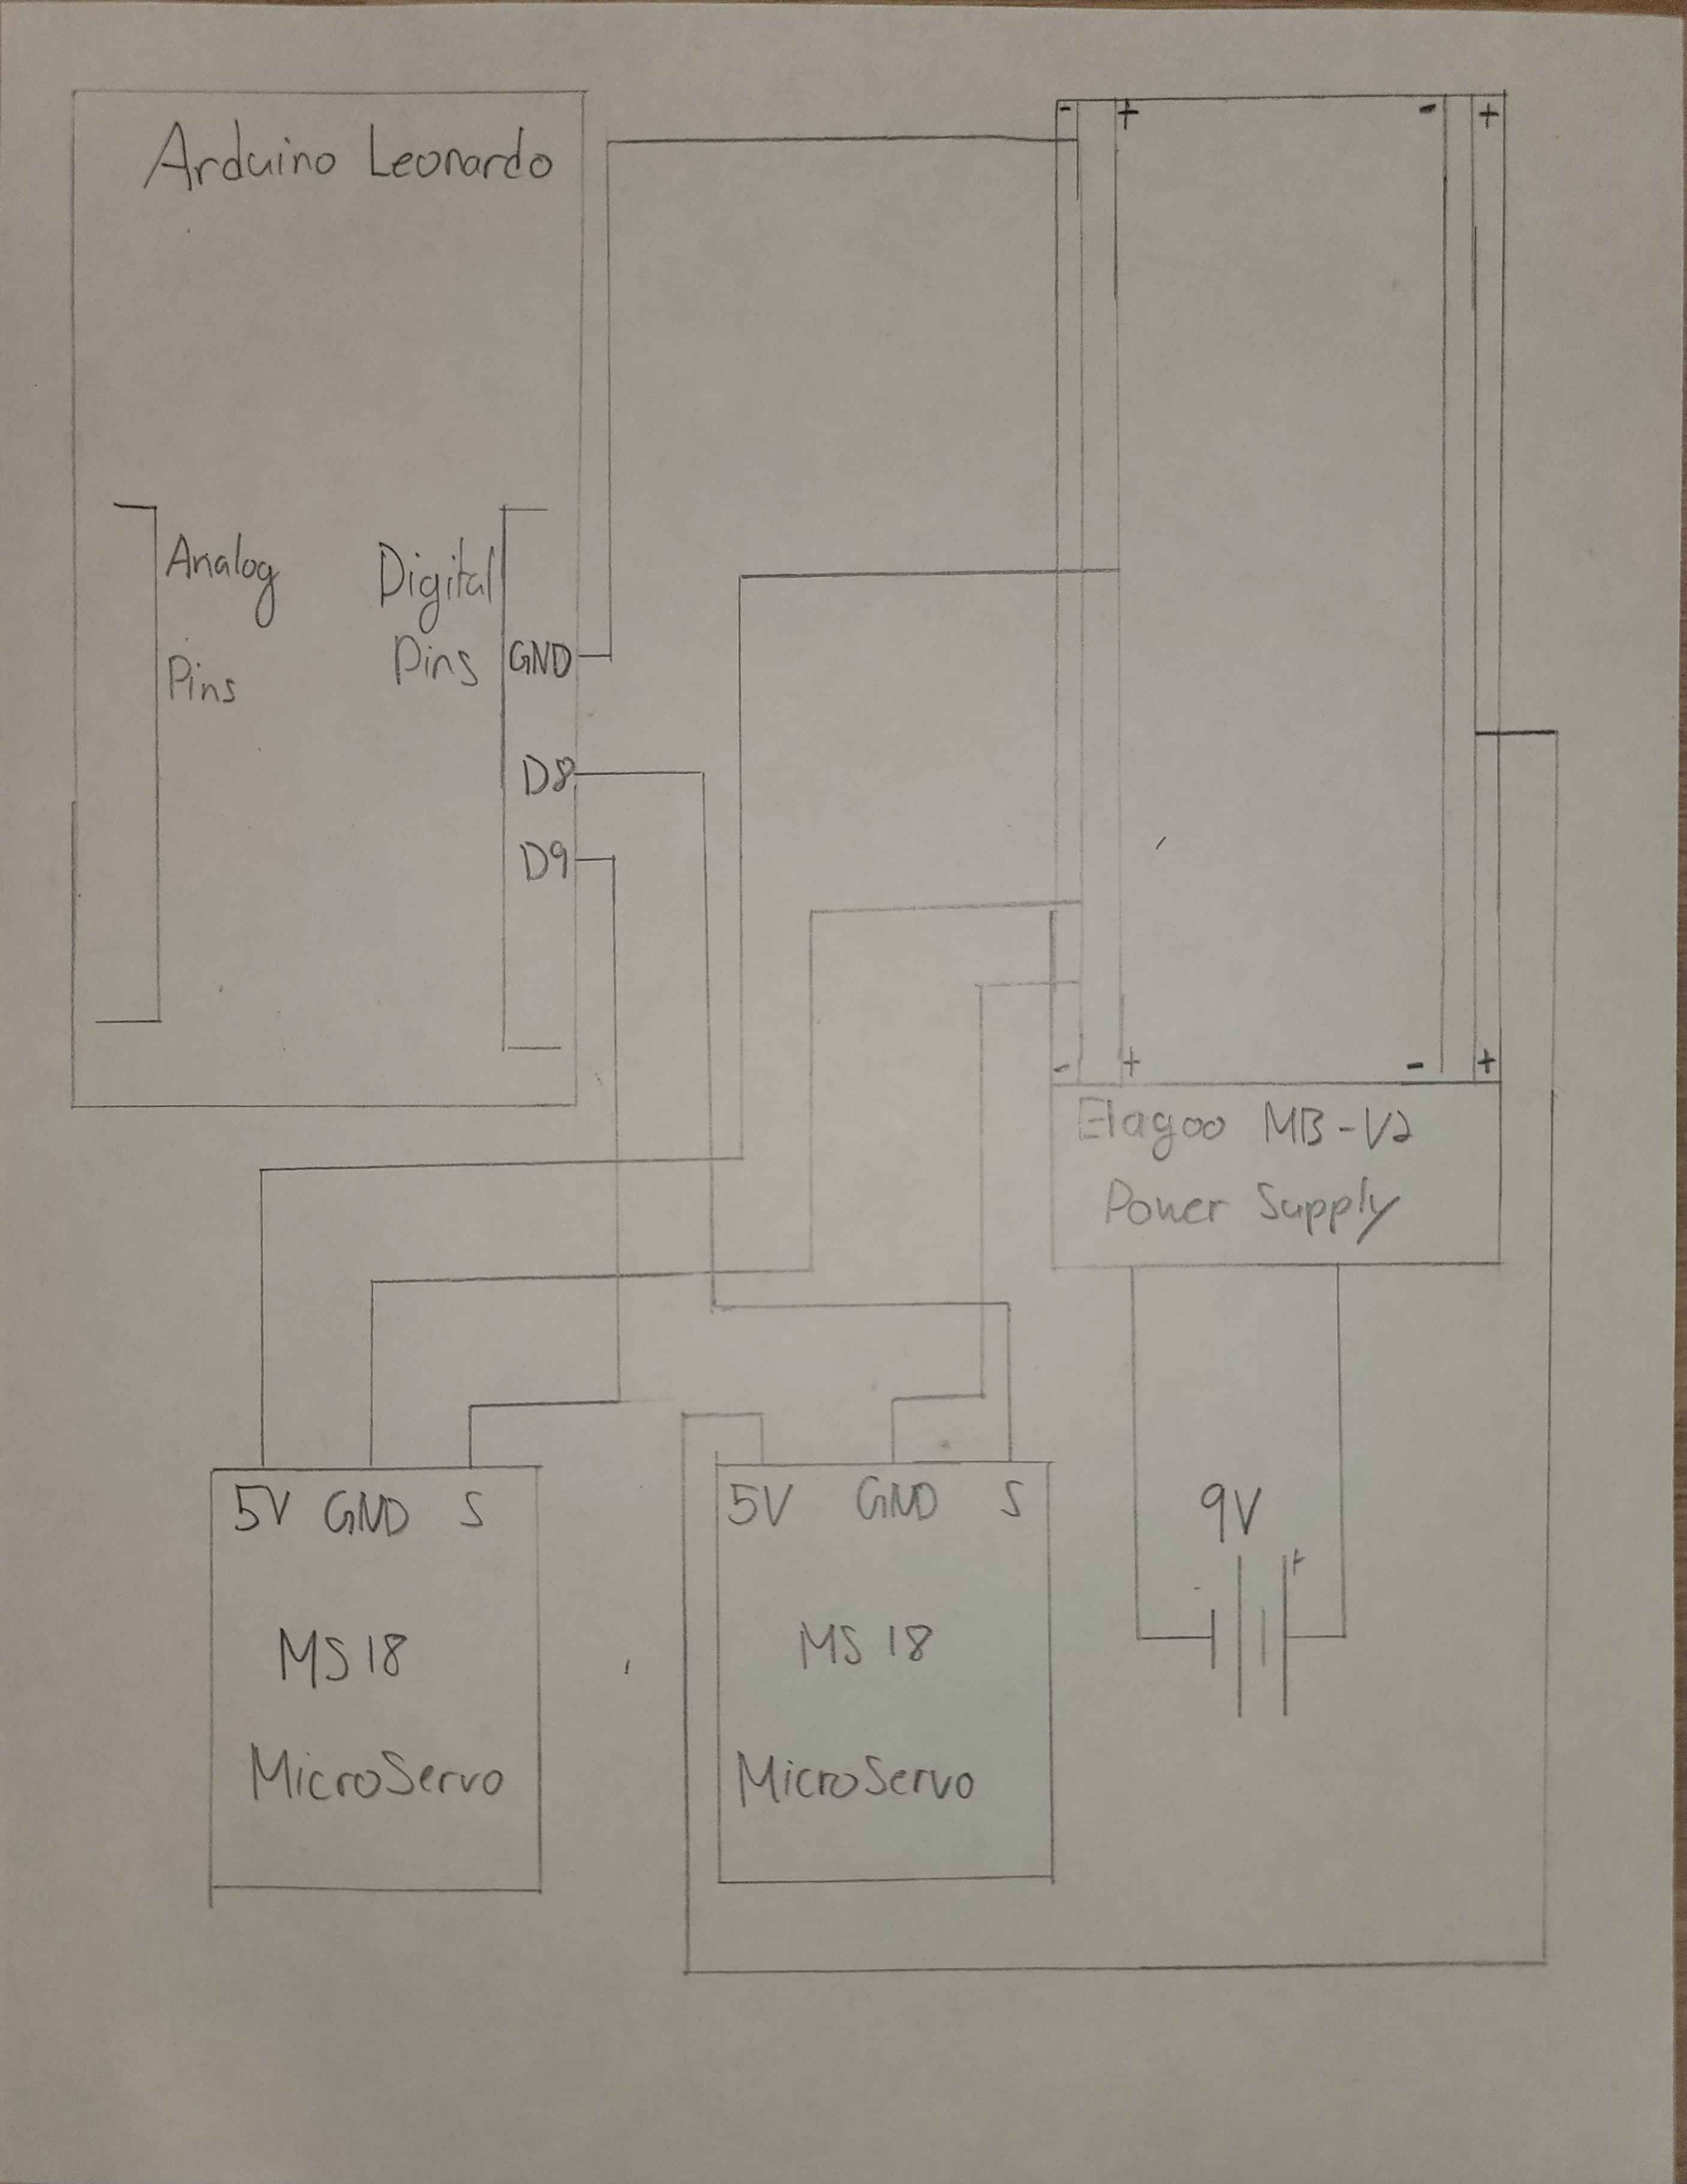 Arduino Leonardo
- + - +
Analog
Pins
Digital
Pins
GND
D8
D9
- + - +
Elagoo MB-V2
Power Supply
5V GND S
MS18
MicroServo
5V GND S
MS 18
MicroServo
9V
- +